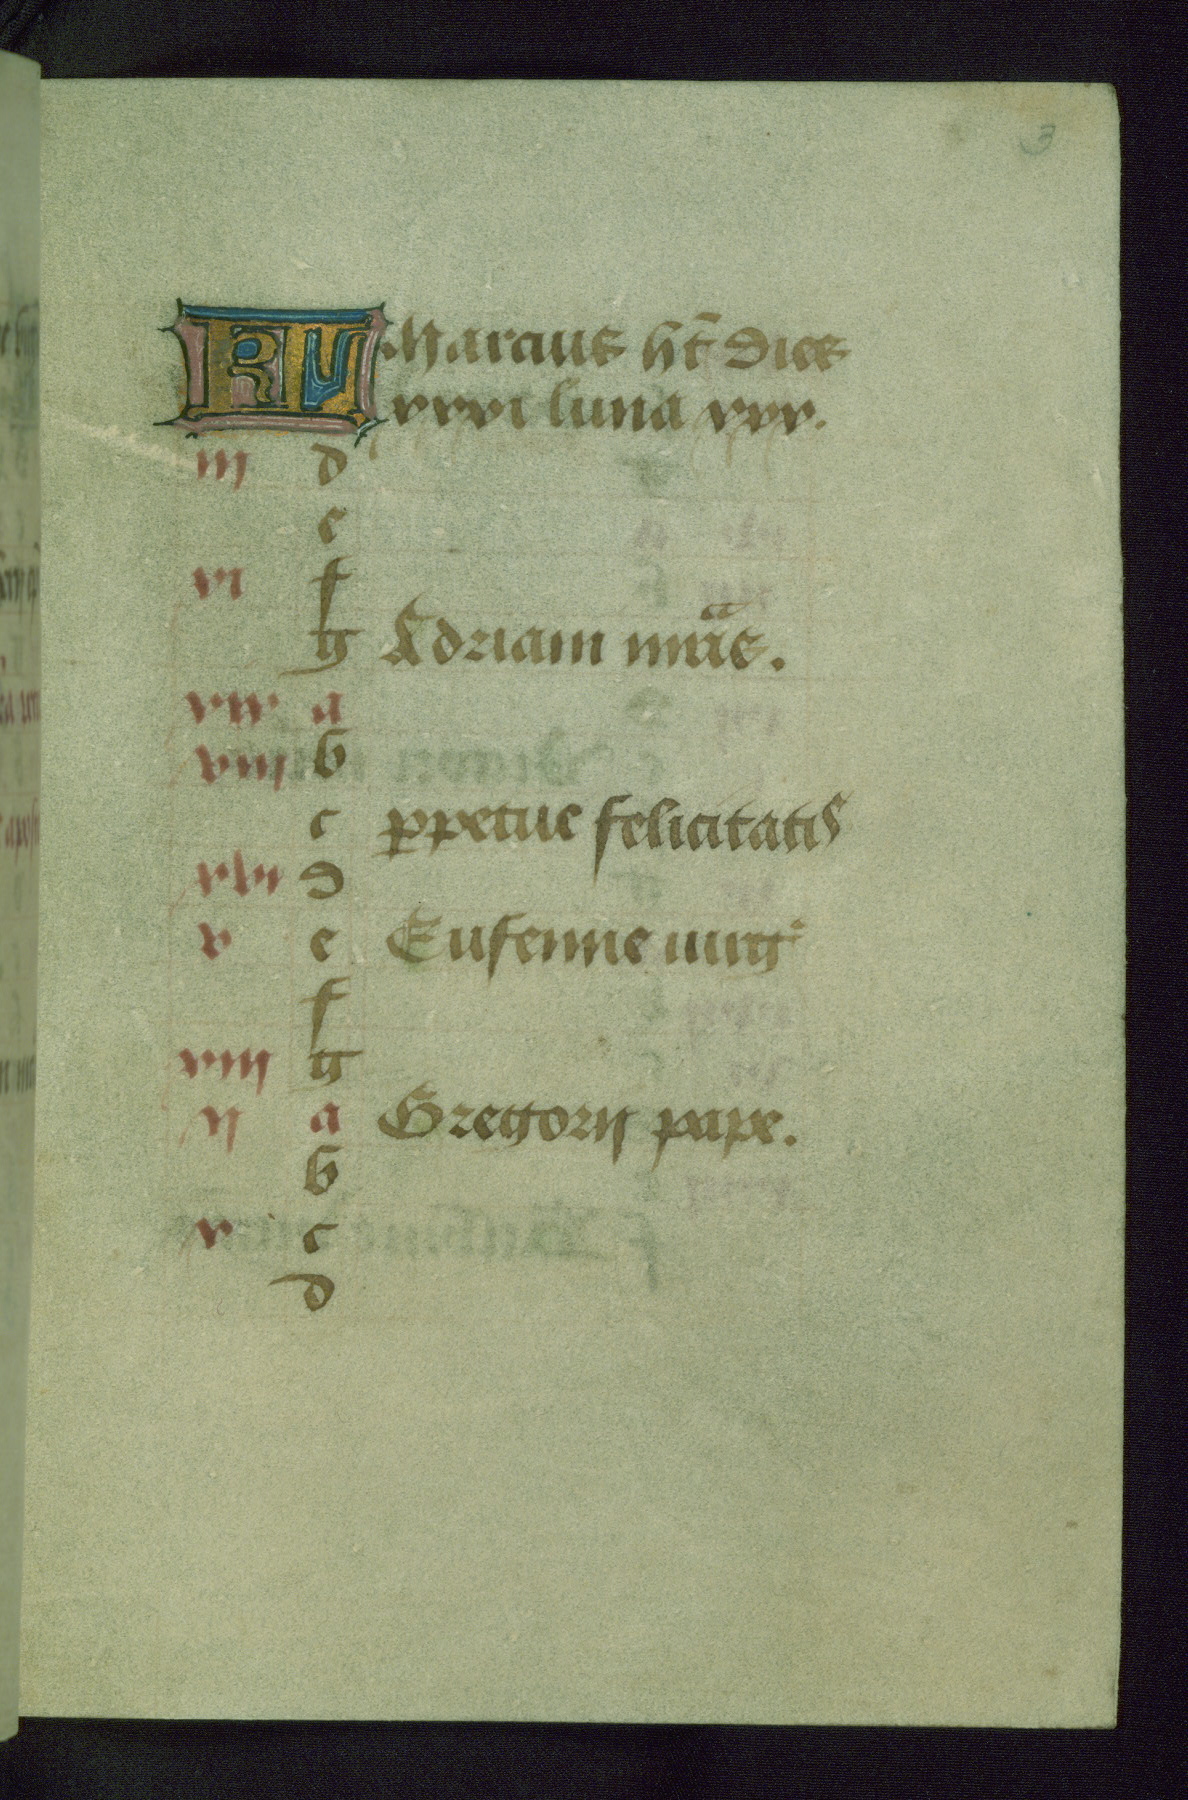 3
KL Marcius ht̄ dies
xxxi luna xxx.
iij d
e
xi f
g Adriani mr̄is.
xix a
viij b
c ꝑpetue felicitatis
xvi d
v e Eufenne uirg̾
f
xiij g
ij a Gregorij pape.
b
x c
d